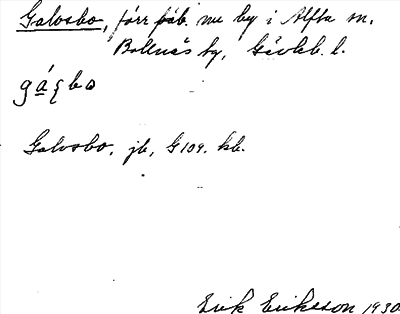 Galvsbo, förr fäb. nu by i Alfta sn.
Bollnäs tg, Gävleb. l.
Galvsbo, jb, G109. kb.
Erik Eriksson 1930